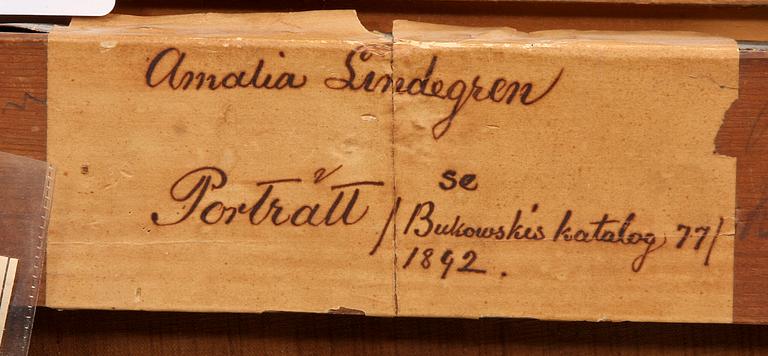 Amalia Lindegren
Porträtt / se
Bukowskis katalog 77/
1892.